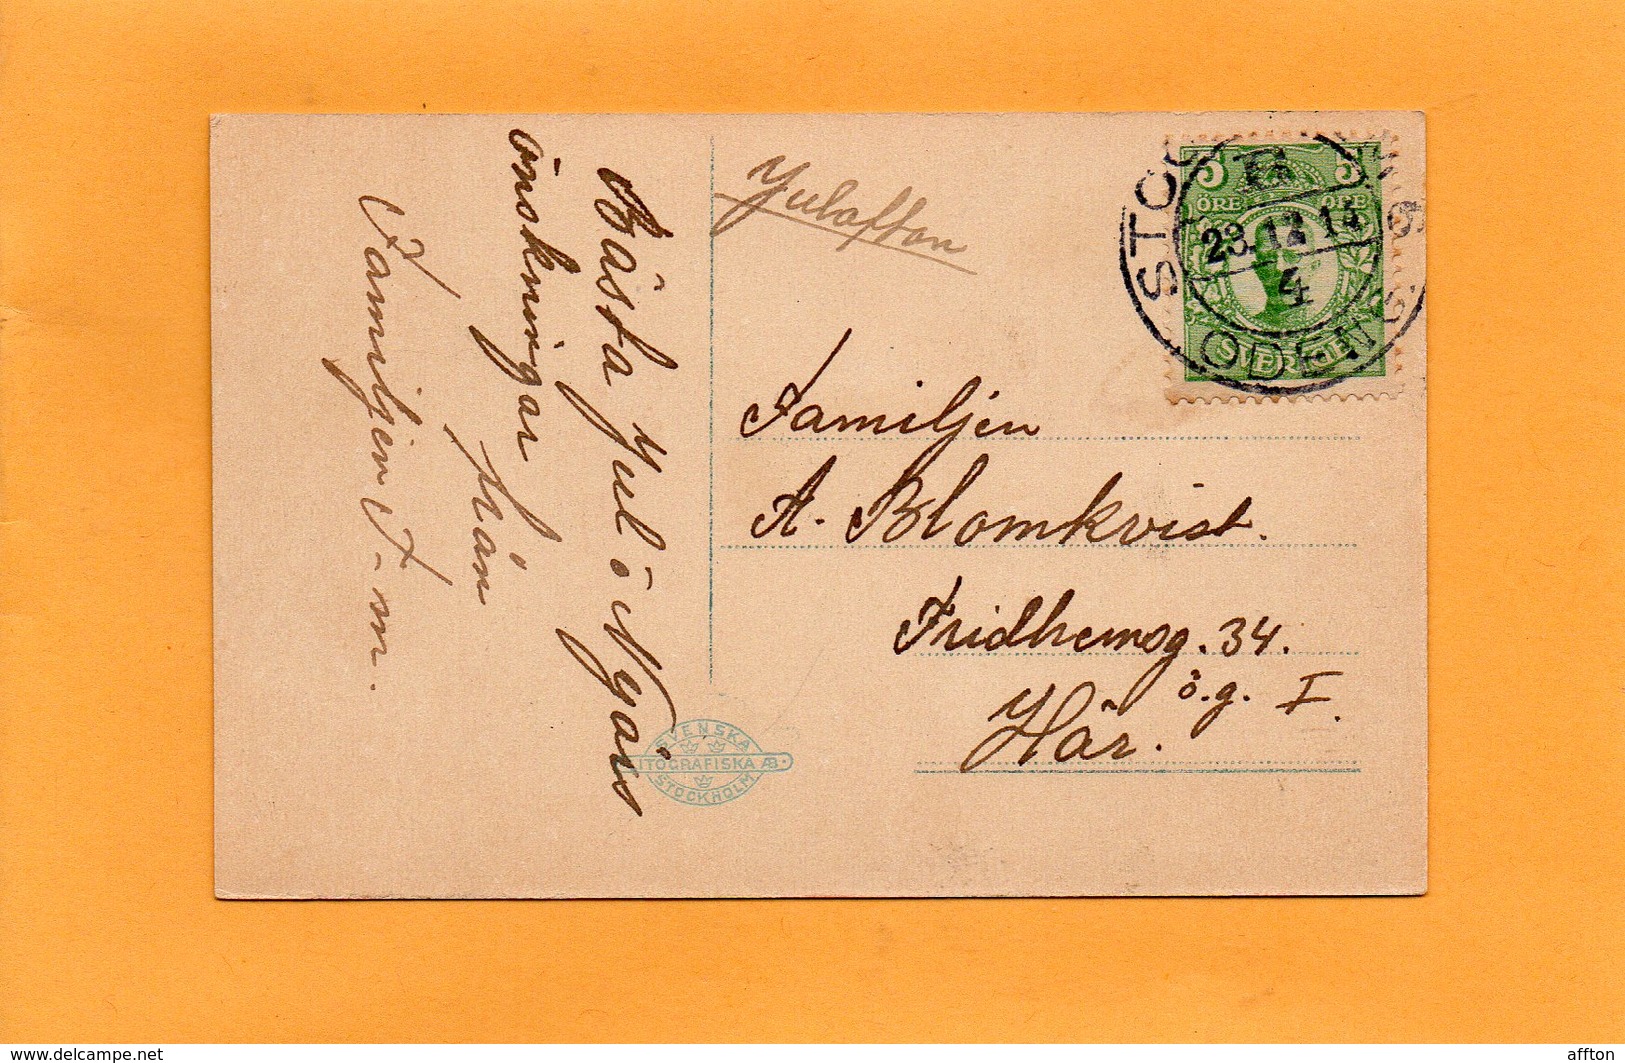 Bästa Jul o Nyårs
önskningar
från
Familjen F-m.
Julafton
Familjen
A. Blomkvist.
Fridhemsg. 34.
ö.g. I.
Här.
5 5
ÖRE ÖRE
SVERIGE
23.12.13
4
ODENG
SVENSKA
LITOGRAFISKA AB.
STOCKHOLM
www.delcampe.net
affton